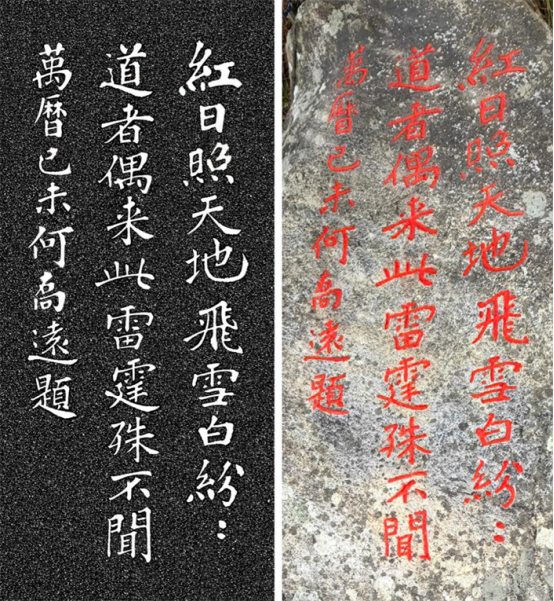 紅日照天地飛雪白紛：
道者偶来此雷霆殊不聞
萬曆己未何喬遠題
紅日照天地飛雪白紛：
道者偶来此雷霆殊不聞
萬曆己未何喬遠題